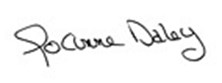 Joanne Daley